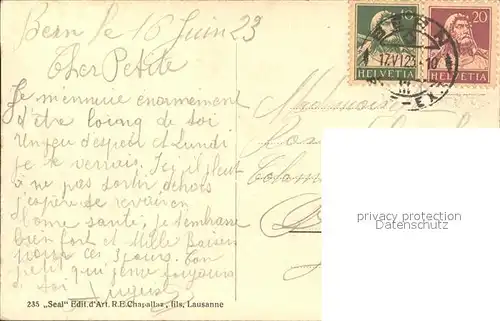 Bern le 16 Juin 23
Cher Petite
Je m'ennuie enormement
d'être loing de toi
Un peu d'espoir et Lundi
je te verrais. Ici, il pleut
à ne pas sortir dehors
j'espère se revoir en
bonne santé, je t'embrasse
bien fort et Mille Baisers
pour ces 3 jours. Ton
petit qui t'aime toujours
235 „Seal" Edit. d'Art. R. E. Chapallaz, fils, Lausanne
10
HELVETIA
20
HELVETIA
BERN
17.VI.23.-10
III
EXP.
privacy protection
Datenschutz